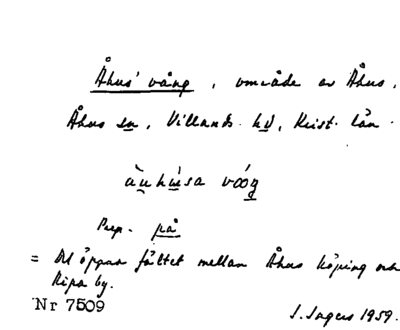 Åhus' vång, område av Åhus,
Åhus sn, Villands hd, Krist. län.
àuhùsa vóóg
Prep. på
= Det öppna fältet mellan Åhus köping och
Ripa by.
Nr 7509
1959.